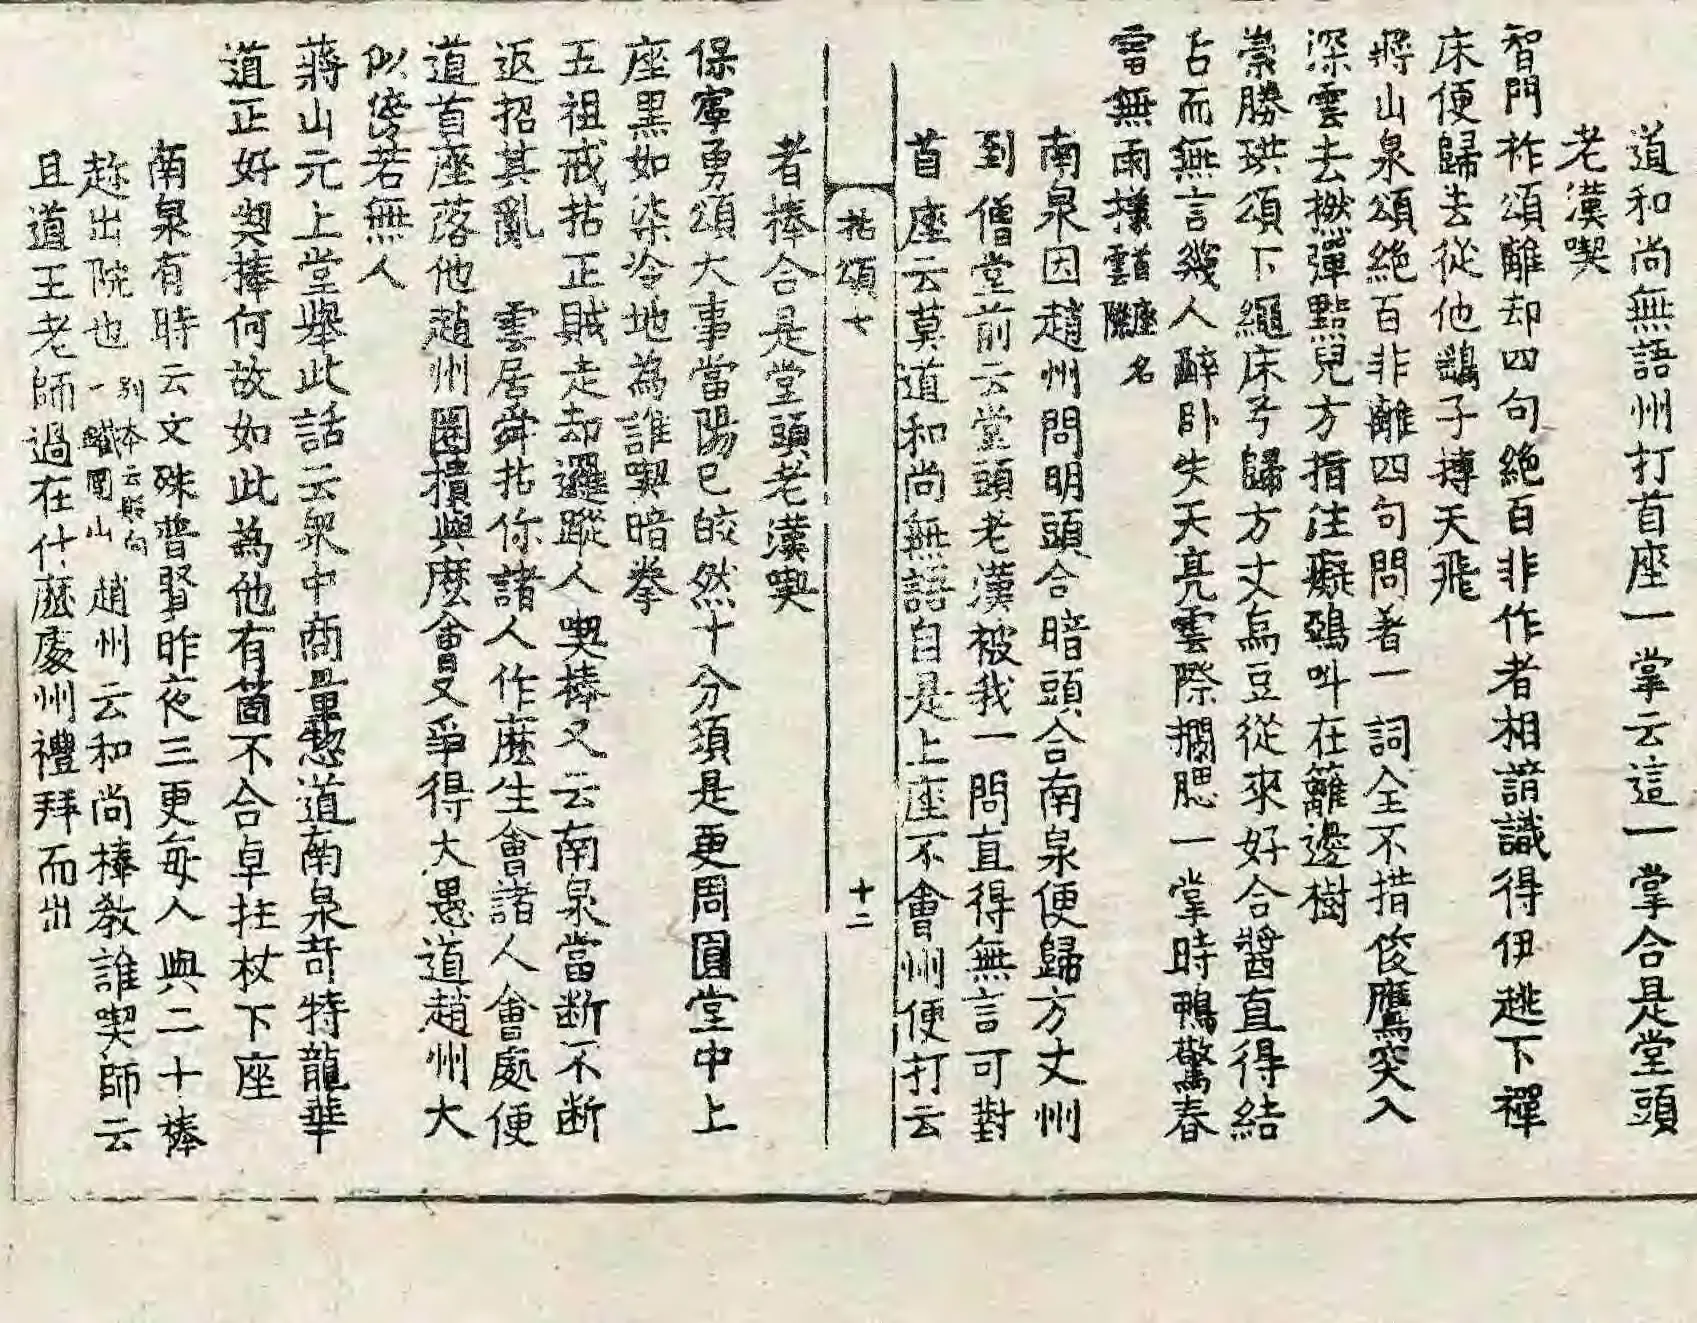 道和尚無語州打首座一掌云這一掌合是堂頭
老漢喫
智門祚頌離却四句絶百非作者相諳識得伊趒下禪
床便歸去從他鷂子摶天飛
蔣山泉頌絶百非離四句問著一詞全不措俊鷹突入
深雲去撚彈黠兒方指注癡鵶叫在籬邊樹
崇勝珙頌下繩床兮歸方丈烏豆從來好合醬直得結
舌而無言幾人醉卧失天亮雲際攔腮一掌時鴨驚春
雷無兩㨾雲際首座名
南泉因趙州問明頭合暗頭合南泉便歸方丈州
到僧堂前云堂頭老漢被我一問直得無言可對
首座云莫道和尚無語自是上座不會州便打云
拈頌七 十二
者棒合是堂頭老漢喫
保寧勇頌大事當陽已皎然十分須是更周圓堂中上
座黑如柒冷地為誰喫暗拳
五祖戒拈正賊走却邏蹤人喫棒又云南泉當断不断
返招其亂 雲居舜拈你諸人作麽生會諸人會處便
道首座落他趙州圈樻與麽會又爭得大愚道趙州大
似傍若無人
蔣山元上堂擧此話云衆中商量惣道南泉竒特龍華
道正好喫捧何故如此為他有箇不合卓拄杖下座
南泉有時云文殊普賢昨夜三更每人與二十棒
趂出院也 別本云貶向一鐵圍山 趙州云和尚棒教誰喫師云
且道王老師過在什麽處州禮拜而出